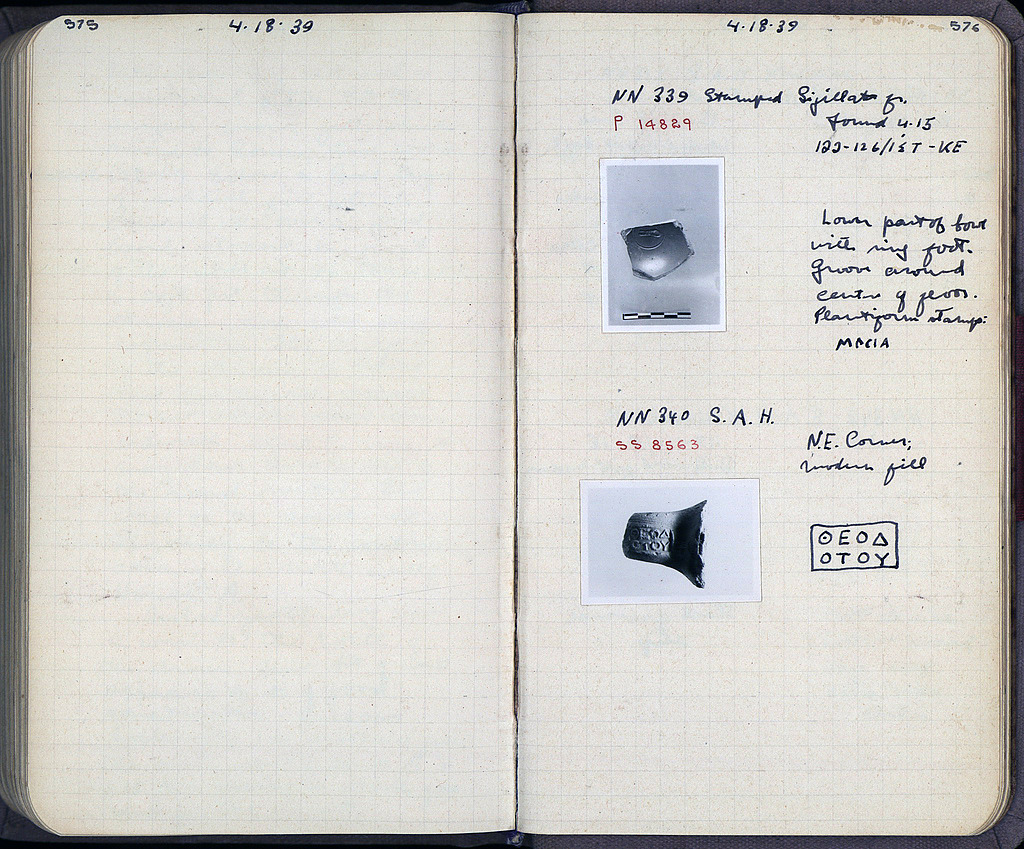 575
4·18·39
4·18·39
576
NN 339 Stamped Sigillata fr.
P 14829
found 4·15
/ΙΣΤ -ΚΕ
Lower part of bowl
with ring foot.
Groove around
centre of floor.
Plantiform stamp:
NN 340 S.A.H.
SS 8563
N.E. Corner,
modern fill
ΘΕΟΔ
ΟΤΟΥ
ΘΕΟΔ
ΟΤΟΥ